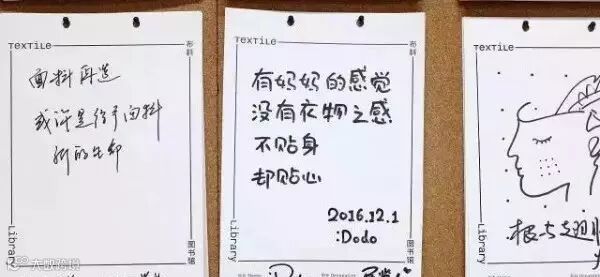 TEXTILE
布料
面料再造
或许是给予面料
新的生命
Library
TEXTILE
布料
有妈妈的感觉
没有衣物之感
不贴身
却贴心
2016.12.1
:Dodo
Library
图书馆
TEXTILE
Library
根与翅膀